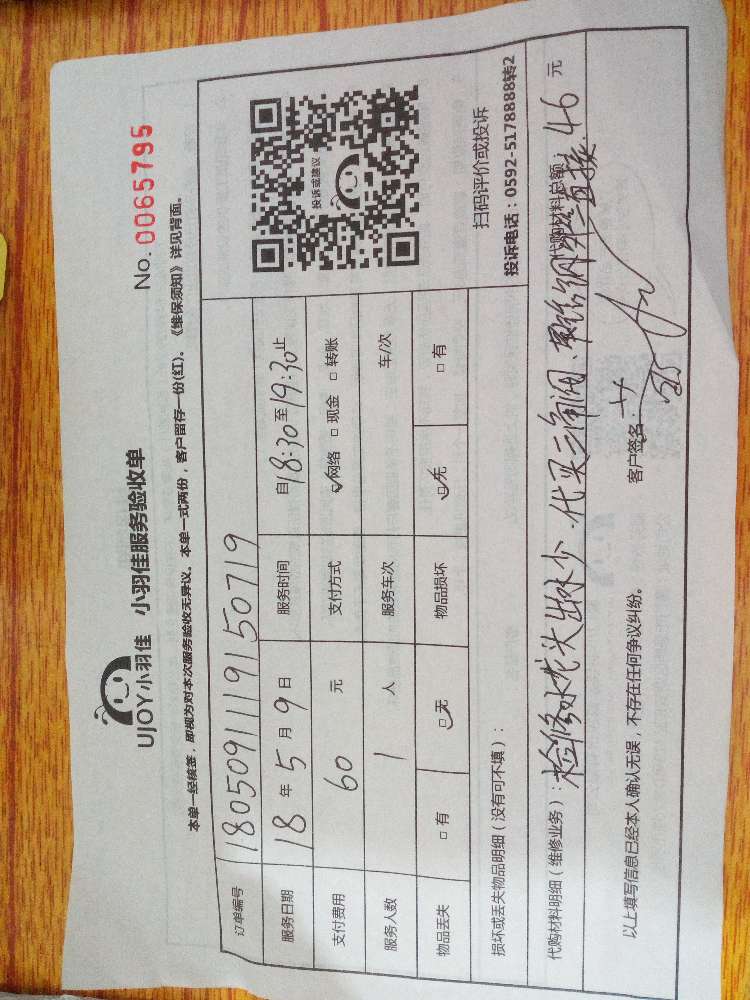 UJOY小羽佳 小羽佳服务验收单
No. 0065795
本单一经核签，即视为对本次服务验收无异议。本单一式两份，客户留存一份(红)。《维保须知》详见背面。
订单编号 180509111915071 9
服务日期 18 年 5 月 9 日 服务时间 自18:30至19:30止
支付费用 60 元 支付方式 网络 □ 现金 □ 转账
服务人数 1 人 服务车次 车/次
物品丢失 □ 有 □ 无 物品损坏 □ 无 □ 有
投诉或建议
扫码评价或投诉
投诉电话：0592-5178888转2
损坏或丢失物品明细（没有可不填）：
代购材料明细（维修业务）：检修水龙头出水少.代买三角阀、 代购材料总额：46 元
以上填写信息已经本人确认无误，不存在任何争议纠纷。 客户签名：